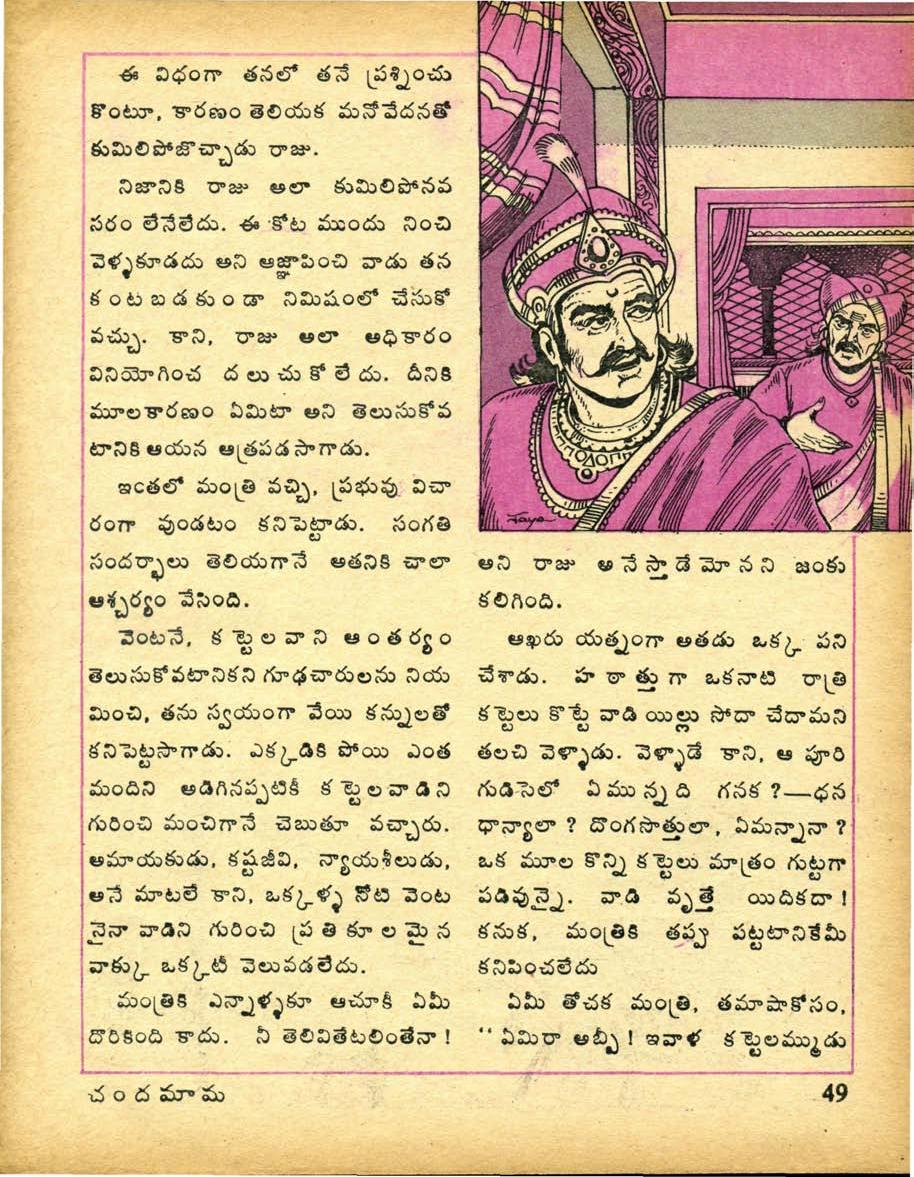 ఈ విధంగా తనలో తనే ప్రశ్నించు
కొంటూ, కారణం తెలియక మనోవేదనతో
కుమిలిపోజొచ్చాడు రాజు.
నిజానికి రాజు అలా కుమిలిపోనవ
సరం లేనేలేదు. ఈ కోట ముందు నించి
వెళ్ళకూడదు అని ఆజ్ఞాపించి వాడు తన
కంటబడకుండా నిమిషంలో చేసుకో
వచ్చు. కాని, రాజు అలా అధికారం
వినియోగించ దలుచుకోలేదు. దీనికి
మూలకారణం ఏమిటా అని తెలుసుకోవ
టానికి ఆయన ఆత్రపడసాగాడు.
ఇంతలో మంత్రి వచ్చి, ప్రభువు విచా
రంగా వుండటం కనిపెట్టాడు. సంగతి
సందర్భాలు తెలియగానే అతనికి చాలా
ఆశ్చర్యం వేసింది.
వెంటనే, కట్టెలవాని ఆంతర్యం
తెలుసుకోవటానికని గూఢచారులను నియ
మించి, తను స్వయంగా వేయి కన్నులతో
కనిపెట్టసాగాడు. ఎక్కడికి పోయి ఎంత
మందిని అడిగినప్పటికీ కట్టెలవాడిని
గురించి మంచిగానే చెబుతూ వచ్చారు.
అమాయకుడు, కష్టజీవి, న్యాయశీలుడు,
అనే మాటలే కాని, ఒక్కళ్ళ నోటి వెంట
నైనా వాడిని గురించి ప్రతికూలమైన
వాక్కు ఒక్కటీ వెలువడలేదు.
మంత్రికి ఎన్నాళ్ళకూ ఆచూకీ ఏమీ
దొరికింది కాదు. నీ తెలివితేటలింతేనా !
Jaya
అని రాజు అనేస్తాడేమోనని జంకు
కలిగింది.
ఆఖరు యత్నంగా అతడు ఒక్క పని
చేశాడు. హఠాత్తుగా ఒకనాటి రాత్రి
కట్టెలు కొట్టే వాడి యిల్లు సోదా చేదామని
తలచి వెళ్ళాడు. వెళ్ళాడే కాని, ఆ పూరి
గుడిసెలో ఏమున్నది గనక ?—ధన
ధాన్యాలా ? దొంగసొత్తులా, ఏమన్నానా ?
ఒక మూల కొన్ని కట్టెలు మాత్రం గుట్టగా
పడివున్నై. వాడి వృత్తే యిదికదా !
కనుక, మంత్రికి తప్పు పట్టటానికేమీ
కనిపించలేదు
ఏమీ తోచక మంత్రి, తమాషాకోసం,
“ ఏమిరా అబ్బీ ! ఇవాళ కట్టెలమ్ముడు
చందమామ
49